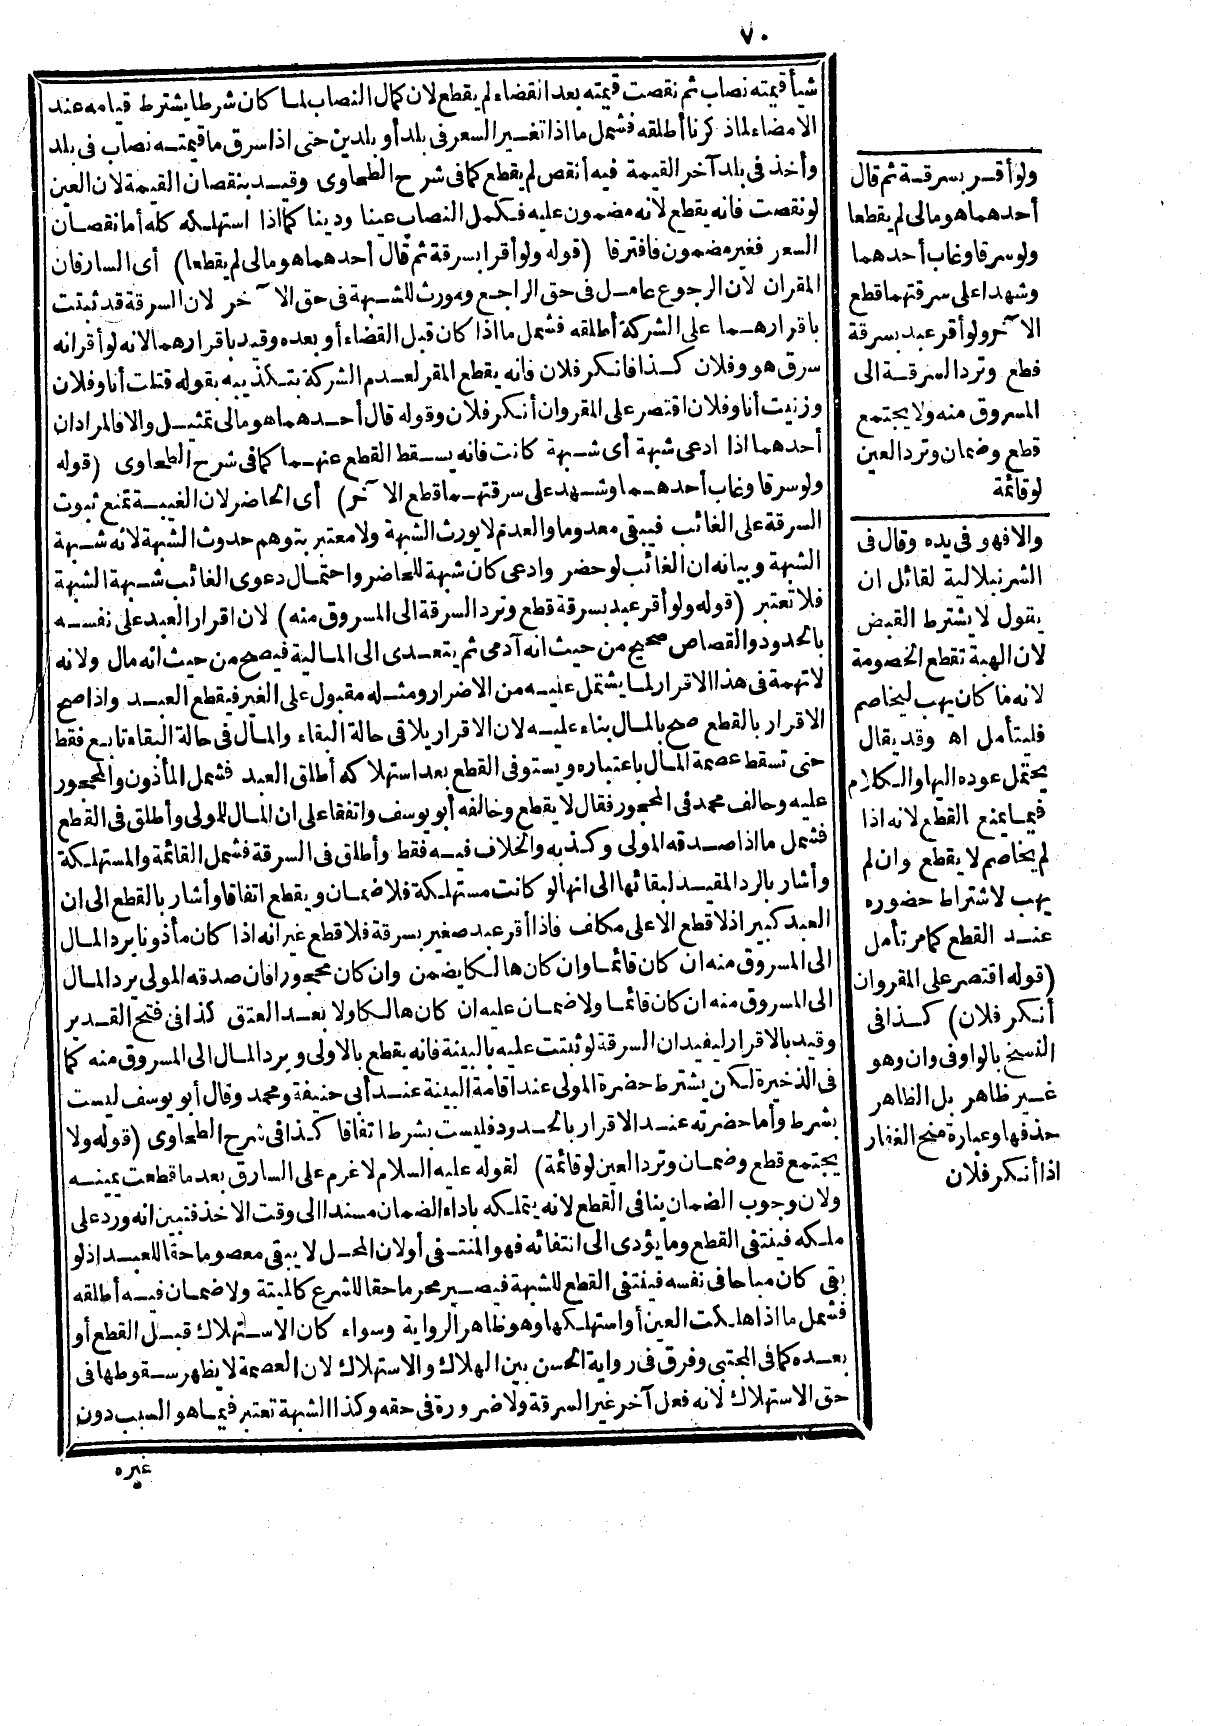 ٧٠
شيأ قيمته نصاب ثم نقصت قيمته بعد انقضاء لم يقطع لان كمال النصاب لما كان شرطا يشترط قيامه عند
الامضاء لما ذكرنا أطلقه فشمل ما اذا تغير السعر فى بلد أو بلدين حتى اذا سرق ما قيمته نصاب فى بلد
وأخذ فى بلد آخر القيمة فيه أنقص لم يقطع كما فى شرح الطحاوى وقيد بنقصان القيمة لان العين
لو نقصت فانه يقطع لانه مضمون عليه فكمل النصاب عينا ودينا كما اذا استهلكه كله أما نقصان
السعر فغير مضمون فافترقا (قوله ولو أقرا بسرقة ثم قال أحدهما هو مالى لم يقطعا) أى السارقان
المقران لان الرجوع عامل فى حق الراجع ومورث للشبهة فى حق الآخر لان السرقة قد ثبتت
باقرارهما على الشركة أطلقه فشمل ما اذا كان قبل القضاء أو بعده وقيد باقرارهما لانه لو أقر انه
سرق هو وفلان كذا فانكر فلان فانه يقطع المقر لعدم الشركة بتكذيبه بقوله قتلت أنا وفلان
وزنيت أنا وفلان اقتصر على المقر وان أنكر فلان وقوله قال أحدهما هو مالى تمثيل والا فالمراد ان
أحدهما اذا ادعى شبهة أى شبهة كانت فانه يسقط القطع عنهما كما فى شرح الطحاوى (قوله
ولو سرقا وغاب أحدهما وشهد على سرقتهما قطع الآخر) أى الحاضر لان الغيبة تمنع ثبوت
السرقة على الغائب فيبقى معدوما والعدم لا يورث الشبهة ولا معتبر بتوهم حدوث الشبهة لانه شبهة
الشبهة وبيانه ان الغائب لو حضر وادعى كان شبهة للحاضر واحتمال دعوى الغائب شبهة الشبهة
فلا تعتبر (قوله ولو أقر عبد بسرقة قطع وترد السرقة الى المسروق منه) لان اقرار العبد على نفسه
بالحدود والقصاص صحيح من حيث انه آدمى ثم يتعدى الى المالية فيصح من حيث انه مال ولانه
لا تهمة فى هذا الاقرار لما يشتمل عليه من الاضرار ومثله مقبول على الغير فيقطع العبد واذا صح
الاقرار بالقطع صح بالمال بناء عليه لان الاقرار يلاقى حالة البقاء والمال فى حالة البقاء تابع فقط
حتى تسقط عصمة المال باعتباره ويستوفى القطع بعد استهلاكه أطلق العبد فشمل المأذون والمحجور
عليه وخالف محمد فى المحجور فقال لا يقطع وخالفه أبو يوسف واتفقا على ان المال للمولى وأطلق فى القطع
فشمل ما اذا صدقه المولى وكذبه والخلاف فيه فقط وأطلق فى السرقة فشمل القائمة والمستهلكة
وأشار بالرد المقيد لبقائها الى انها لو كانت مستهلكة فلا ضمان ويقطع اتفاقا وأشار بالقطع الى ان
العبد كبير اذ لا قطع الا على مكلف فاذا أقر عبد صغير بسرقة فلا قطع غير انه اذا كان مأذونا يرد المال
الى المسروق منه ان كان قائما وان كان هالكا يضمن وان كان محجورا فان صدقه المولى يرد المال
الى المسروق منه ان كان قائما ولا ضمان عليه ان كان هالكا ولا بعد العتق كذا فى فتح القدير
وقيد بالاقرار ليفيد ان السرقة لو ثبتت عليه بالبينة فانه يقطع بالاولى ويرد المال الى المسروق منه كما
فى الذخيرة لكن يشترط حضرة المولى عند اقامة البينة عند أبى حنيفة ومحمد وقال أبو يوسف ليست
بشرط وأما حضرته عند الاقرار بالحدود فليست بشرط اتفاقا كذا فى شرح الطحاوى (قوله ولا
يجتمع قطع وضمان وترد العين لو قائمة) لقوله عليه السلام لا غرم على السارق بعد ما قطعت يمينه
ولان وجوب الضمان ينافى القطع لانه يتملكه باداء الضمان مستندا الى وقت الاخذ فتبين انه ورد على
ملكه فينتفى القطع وما يؤدى الى انتفائه فهو المنتفى أو لان المحل لا يبقى معصوما حقا للعبد اذ لو
بقى كان مباحا فى نفسه فينتفى القطع للشبهة فيصير محرما حقا للشرع كالميتة ولا ضمان فيه أطلقه
فشمل ما اذا هلكت العين أو استهلكها وهو ظاهر الرواية وسواء كان الاستهلاك قبل القطع أو
بعده كما فى المجتبى وفرق فى رواية الحسن بين الهلاك والاستهلاك لان العصمة لا يظهر سقوطها فى
حق الاستهلاك لانه فعل آخر غير السرقة ولا ضرورة فى حقه وكذا الشبهة تعتبر فيما هو السبب دون
غيره
ولو أقر بسرقة ثم قال
أحدهما هو مالى لم يقطعا
ولو سرقا وغاب أحدهما
وشهدا على سرقتهما قطع
الآخر ولو أقر عبد بسرقة
قطع وترد السرقة الى
المسروق منه ولا يجتمع
قطع وضمان وترد العين
لو قائمة
والا فهو فى يده وقال فى
الشرنبلالية لقائل ان
يقول لا يشترط القبض
لان الهبة تقطع الخصومة
لانه ما كان يهب ليخاصم
فليتأمل اه وقد يقال
يحتمل عوده اليها والكلام
فيما يمنع القطع لانه اذا
لم يخاصم لا يقطع وان لم
يهب لاشتراط حضوره
عند القطع كما مر تأمل
(قوله اقتصر على المقر وان
أنكر فلان) كذا فى
النسخ بالواو فى وان وهو
غير ظاهر بل الظاهر
حذفها وعبارة منح الغفار
اذا أنكر فلان